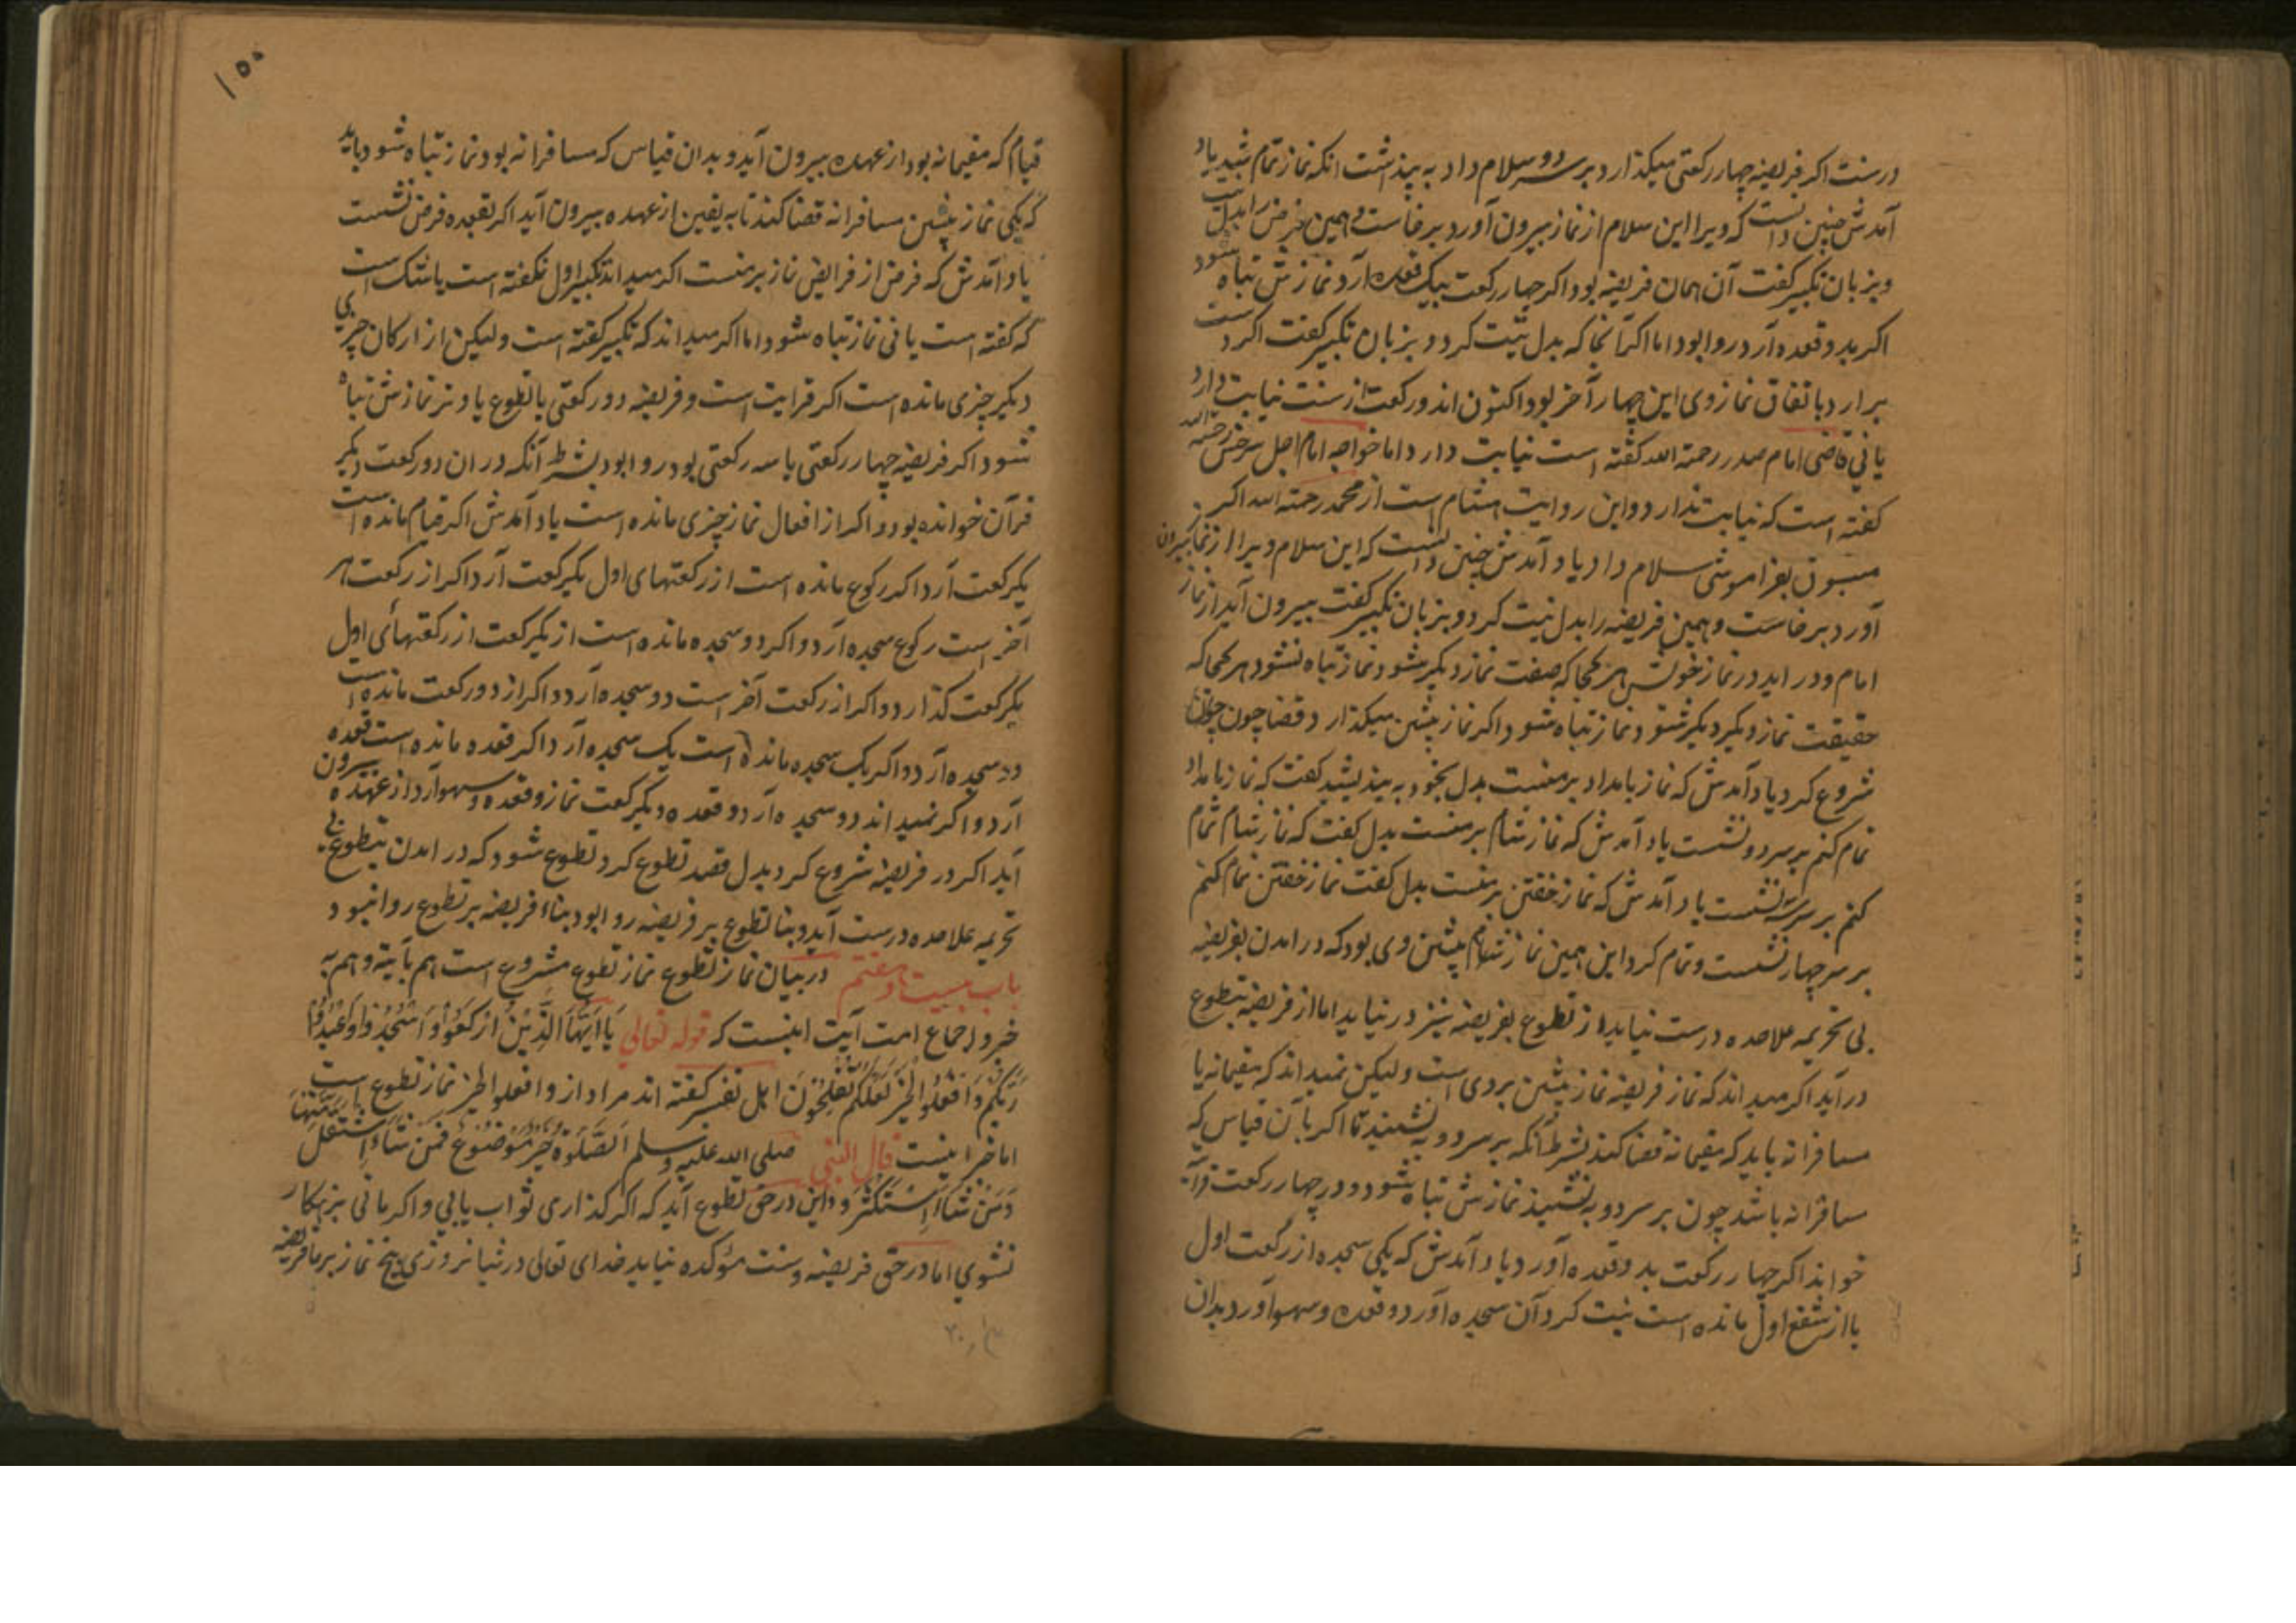 درست اکر فریضهٔ چهار رکعتی میکذارد بر سر دو سلام داد به پنداشت انکه نماز تمام شد یاد
آمدش چنین دانست که ویرا این سلام از نماز بیرون آورد برخاست و همین فرض را بدل نیت
و بزبان تکبیر کفت آن همان فریضه بود اکر چهار رکعت بیک قعده آرد نمازش تباه شود
اکر بدو قعده آرد روا بود اما اکر آنجا که بدل نیت کرد و بزبان تکبیر کفت اکر دست
برارد باتفاق نماز وی این چهار آخر بود اکنون اندو رکعت از سنت نیابت دارد
یا نی قاضی امام صدر رحمة الله کفته است نیابت دارد اما خواجه امام اجل سرخسی رحمه الله
کفته است که نیابت ندارد و این روایت هشام است از محمد رحمة الله اکر
مسبوق بفراموشی سلام داد یاد آمدش چنین دانست که این سلام ویرا از نماز بیرون
آورد برخاست و همین فریضه را بدل نیت کرد و بزبان تکبیر کفت بیرون آید از نماز
امام و در اید در نماز خویش هر کجا که صفت نماز دیکر شود نماز تباه نشود هر کجا که
حقیقت نماز دیکر دیکر شود نماز تباه شود اکر نماز پیشین میکذارد قضا چون
شروع کرد یاد آمدش که نماز بامداد بر منست بدل بخود به بیندیشید کفت که نماز بامداد
تمام کنم بر سر دو نشست یاد آمدش که نماز شام بر منست بدل کفت که نماز شام تمام
کنم بر سر سه نشست یاد آمدش که نماز خفتن بر منست بدل کفت نماز خفتن تمام کنم
بر سر چهار نشست و تمام کرد این همین نماز پیشین وی بود که در امدن بفریضه
بی تحریمه علاحده درست نیاید از تطوع بفریضه نیز در نیاید اما از فریضه بتطوع
در آید اکر میداند که نماز فریضه نماز پیشین بر وی است و لیکن نمیداند که مقیمانه یا
مسافرانه باید که مقیمانه قضا کند بشرط آنکه بر سر دو به نشیند تا اکر بآن قیاس که
مسافرانه باشد چون بر سر دو به نشیند نمازش تباه نشود و در چهار رکعت قرآن
خواند اکر چهار رکعت بدو قعده آورد یاد آمدش که یکی سجده از رکعت اول
یا از شفع اول مانده است نیت کرد آن سجده آورد و قعده و سهو آورد بدان
۱۵۵
قیام که مقیمانه بود از عهده بیرون آید و بدان قیاس که مسافرانه بود نماز تباه شود باید
که یکی نماز پیشین مسافرانه قضا کند تا به یقین از عهده بیرون آید اکر بقعده فرض نشست
یاد آمدش که فرض از فرایض نماز بر منست اکر میداند تکبیر اول نکفته است یا شک است
که کفته است یا نی نماز تباه شود اما اکر میداند که تکبیر کفته است ولیکن از ارکان چیزی
دیکر چیزی مانده است اکر قرایت است و فریضه دو رکعتی یا تطوع یا وتر نمازش تباه
شود اکر فریضه چهار رکعتی یا سه رکعتی بود روا بود بشرط آنکه در ان دو رکعت دیکر
قرآن خوانده بود و اکر از افعال نماز چیزی مانده است یاد آمدش اکر قیام مانده است
یکرکعت آرد اکر رکوع مانده است از رکعتهای اول یکرکعت آرد اکر از رکعت
آخر است رکوع سجده آرد و اکر دو سجده مانده است از یکرکعت از رکعتهای اول
یکرکعت کذارد و اکر از رکعت آخر است دو سجده آرد و اکر از دو رکعت مانده است
دو سجده آرد و اکر یک سجده مانده است یک سجده آرد اکر قعده مانده است قعده
آرد و اکر نمیداند دو سجده آرد و قعده و یکرکعت نماز و قعده و سهو آرد از عهده بیرون
آید اکر در فریضه شروع کرد بدل قصد تطوع کرد تطوع شود که در امدن بتطوع بی
تحریمه علاحده درست آید و بنا تطوع بر فریضه روا بود بناء فریضه بر تطوع روا نبود
باب بیست و هفتم در بیان نماز تطوع نماز تطوع مشروع است هم بآیة و هم به
خبر و اجماع امت آیت اینست که قوله تعالی یَا اَیُّهَا الَّذِیْنَ ارْکَعُوْا وَاسْجُدُوْا وَاعْبُدُوْا
رَبَّکُمْ وَافْعَلُوا الْخَیْرَ لَعَلَّکُمْ تُفْلِحُوْنَ اهل تفسیر کفته اند مراد از وافعلوا الخیر نماز تطوع است
اما خبر اینست قال النبی صلی الله علیه وسلم اَلصَّلٰوةُ خَیْرُ مَوْضُوْعٍ فَمَنْ شَاءَ اِسْتَقَلَّ مِنْهَا
وَمَنْ شَاءَ اِسْتَکْثَرَ و این در حق تطوع آید که اکر کذاری ثواب یابی و اکر مانی بزهکار
نشوی اما در حق فریضه و سنت مؤکده نیاید خدای تعالی در شبانروزی پنج نماز بر ما فریضه